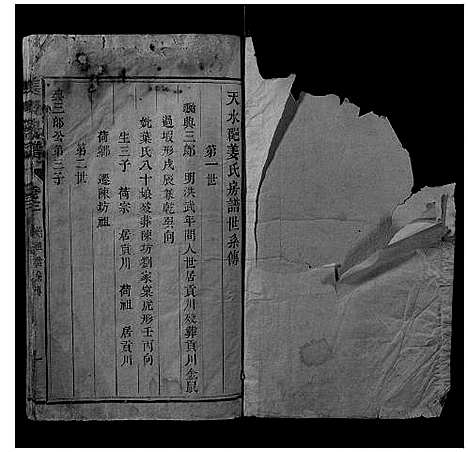 天水郡姜氏房譜世系傳
第一世
興三郎 明洪武年間人世居貢川歿葬貢川金鼠
過塅形戌辰兼乾巽向
妣葉氏八十娘歿葬陳坊劉家窠虎形壬丙向
生三子 荷宗 居貢川 荷祖 居貢川
荷鄉 遷陳坊祖
第二世
三郎公第三子